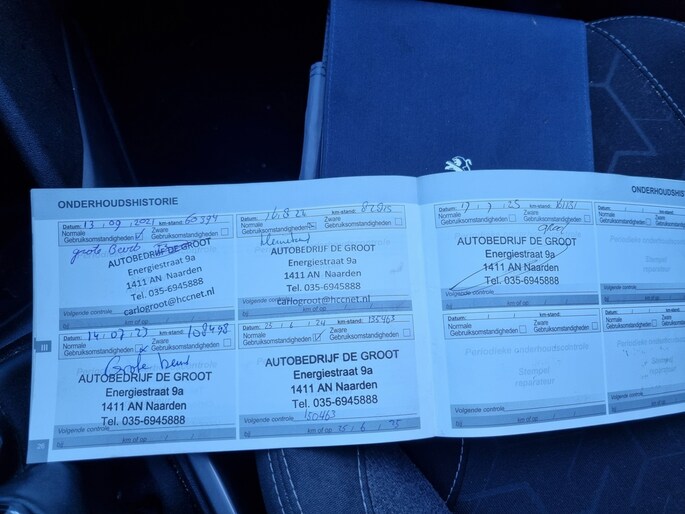 ONDERHOUDSHISTORIE
Datum: 13 , 09 , 2021 km-stand: 60394
Normale Gebruiksomstandigheden
Zware Gebruiksomstandigheden
grote Beurt
AUTOBEDRIJF DE GROOT
Energiestraat 9a
1411 AN Naarden
Tel. 035-6945888
carlogroot@hccnet.nl
Volgende controle
bij km of op
Datum: km-stand:
Normale Gebruiksomstandigheden
Zware Gebruiksomstandigheden
AUTOBEDRIJF DE GROOT
Energiestraat 9a
1411 AN Naarden
Tel. 035-6945888
carlogroot@hccnet.nl
Volgende controle
bij km of op
Datum: 14 - 07 - 23 km-stand: 108498
Normale Gebruiksomstandigheden
Zware Gebruiksomstandigheden
Grote beurt
AUTOBEDRIJF DE GROOT
Energiestraat 9a
1411 AN Naarden
Tel. 035-6945888
Volgende controle
bij km of op
Datum: 25 , 6 , 24 km-stand: 135463
Normale Gebruiksomstandigheden
Zware Gebruiksomstandigheden
AUTOBEDRIJF DE GROOT
Energiestraat 9a
1411 AN Naarden
Tel. 035-6945888
Volgende controle 150463
bij km of op 25 , 6 , 25
III
ONDERHOUDSHIS
Datum: km-stand:
Normale Gebruiksomstandigheden
Zware Gebruiksomstandigheden
AUTOBEDRIJF DE GROOT
Energiestraat 9a
1411 AN Naarden
Tel. 035-6945888
Volgende controle
bij km of op
Datum: km-stand:
Normale Gebruiksomstandigheden
Zware Gebruiksomstandigheden
Periodieke onderhoudscontrole
Stempel
reparateur
Volgende controle
bij km of op
Datum:
Normale
Gebruiksomstandigheden
Stempel
reparateur
Volgende controle
bij
Datum:
Normale
Gebruiksomstandigheden
Volgende controle
bij